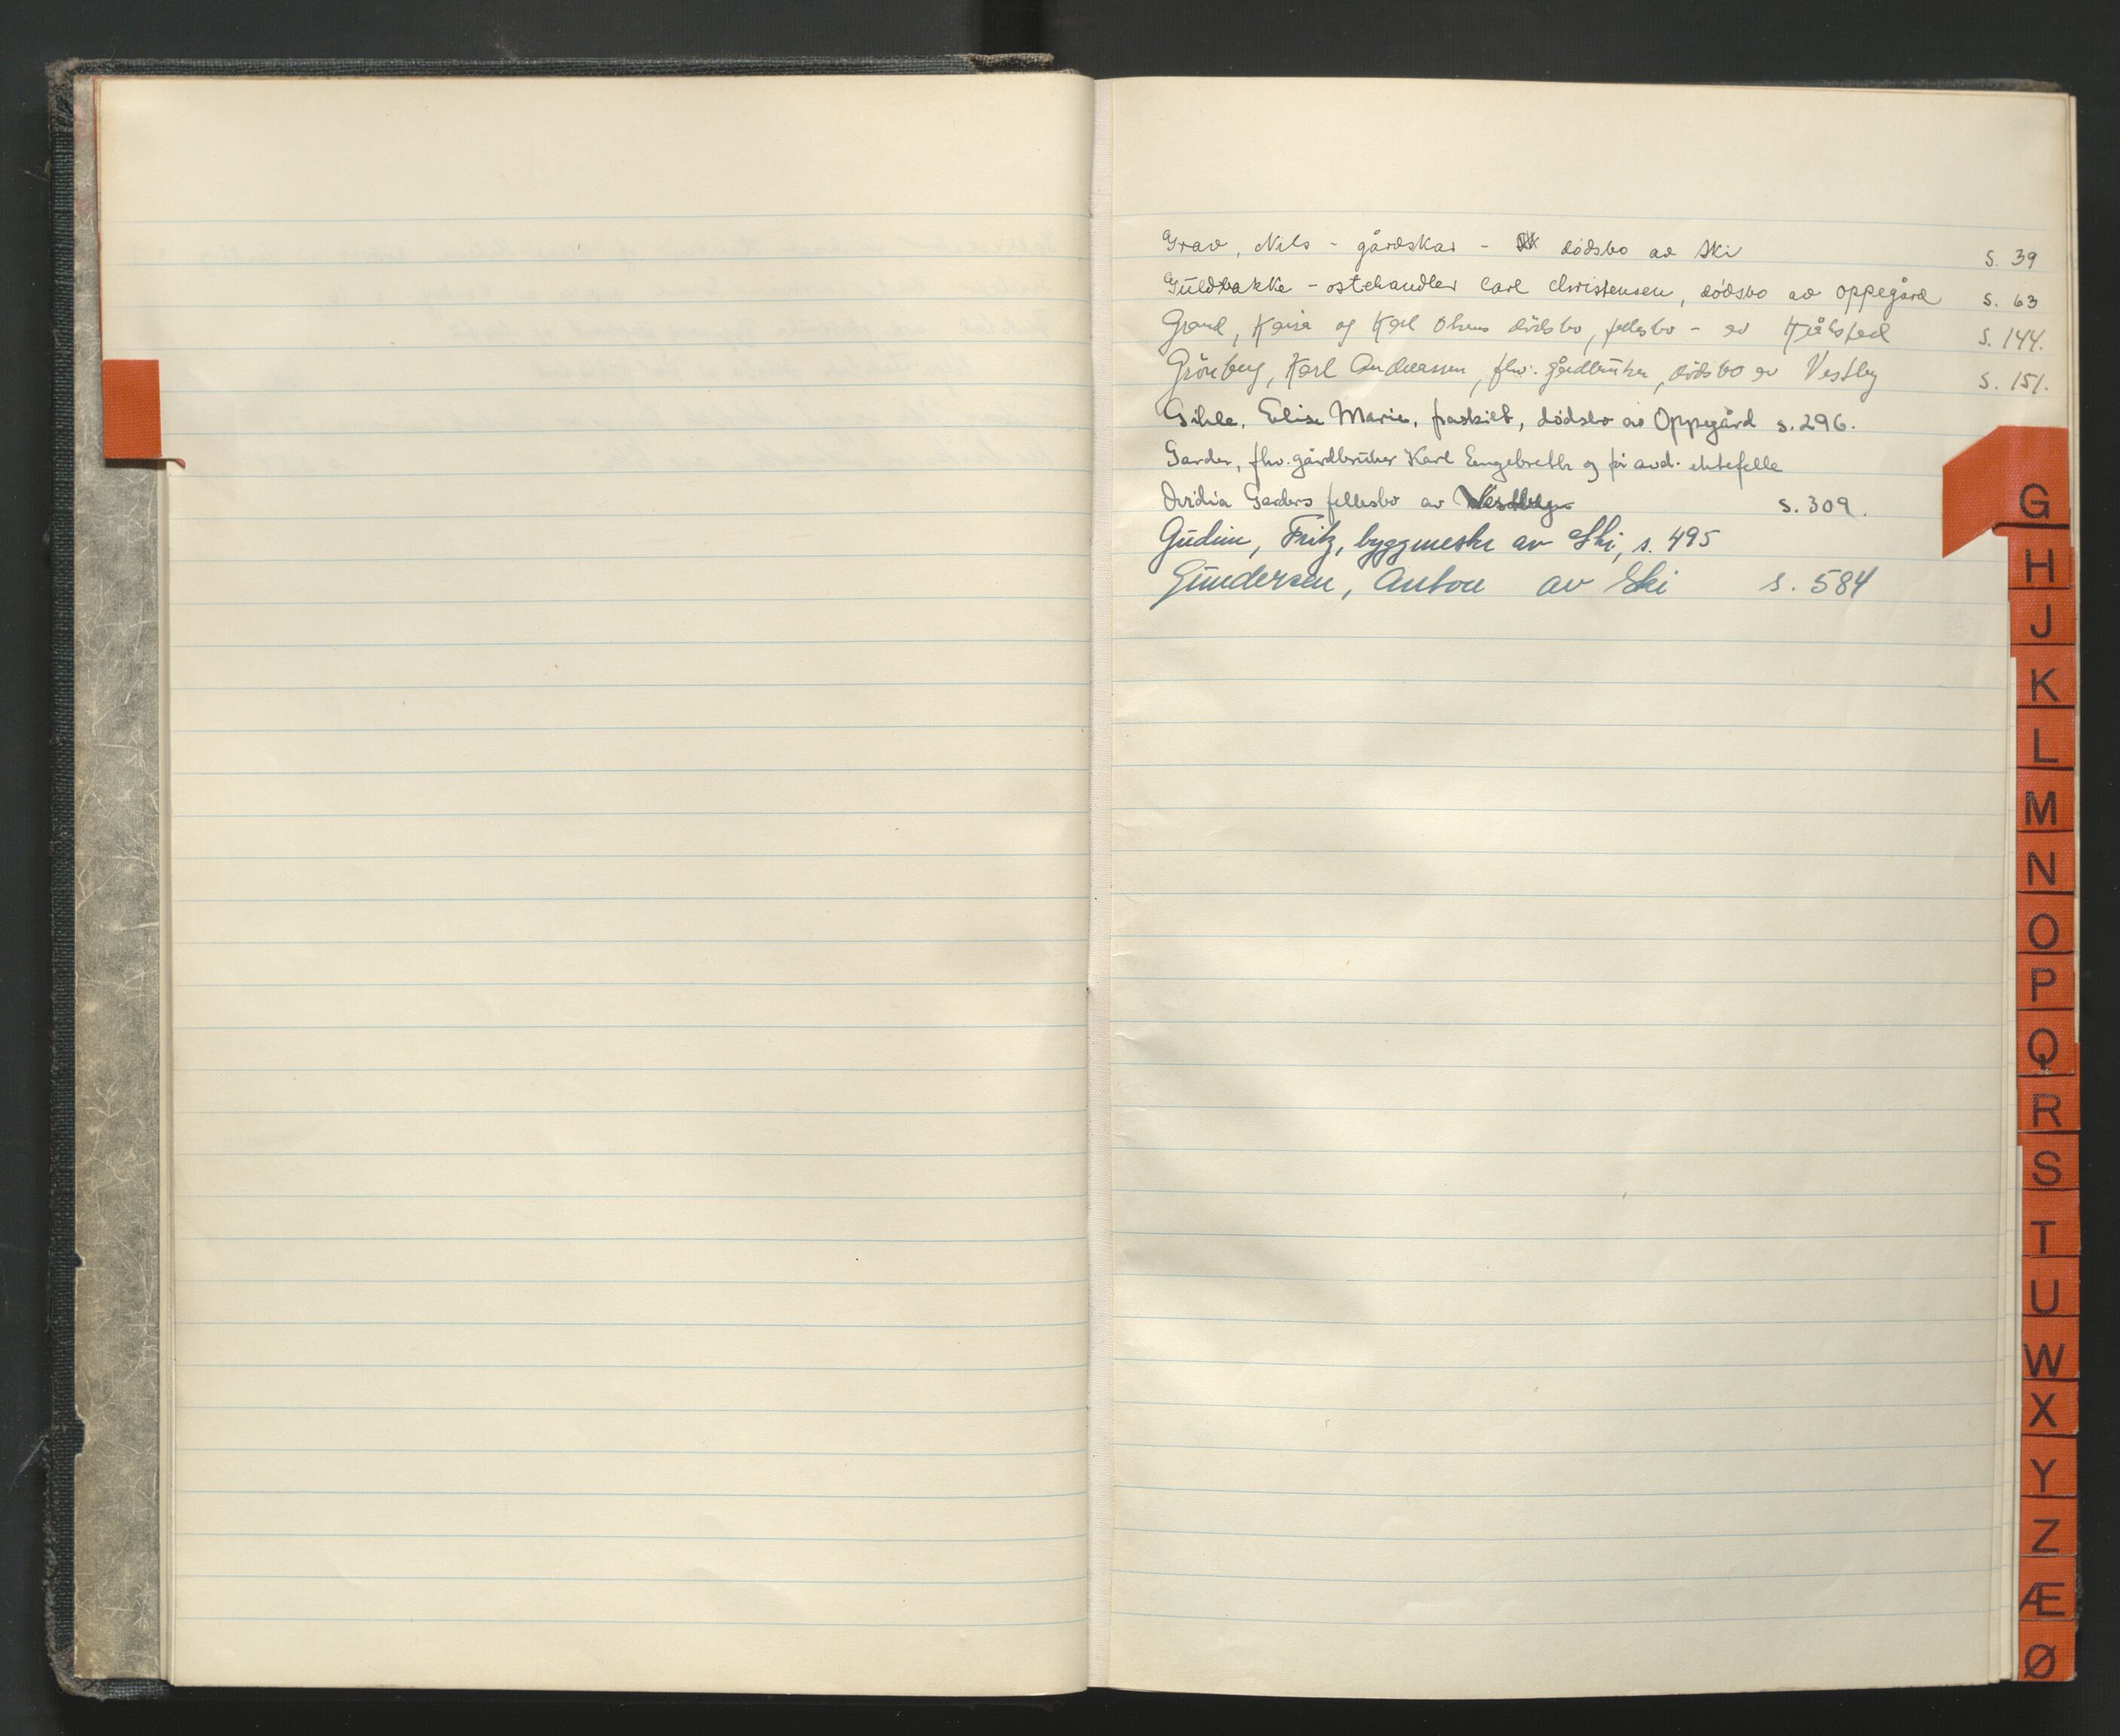 Grav, Nils - gårdskar - dødsbo av Ski s. 39
Guldbakke - ostehandler Carl Christensen, dødsbo av Oppegård s. 63
Grand, Kaisa og Karl Olsens dödsbo, fellesbo - av s. 144.
Grönberg, Karl Andreassen, fhv. gårdbruker, dödsbo av Vestby s. 151.
Gihle, Elise Marie, fraskilt, dödsbo av Oppegård s. 296.
Garder, fhv. gårdbruker Karl Engebreth og før avd. ektefelle
Ovidia Garders fellesbo av Vestby s. 309.
Gudim, Fritz, byggmester av Ski, s. 495
Gundersen, Anton av Ski s. 584
G
H
J
K
L
M
N
O
P
Q
R
S
T
U
W
X
Y
Z
Æ
Ø